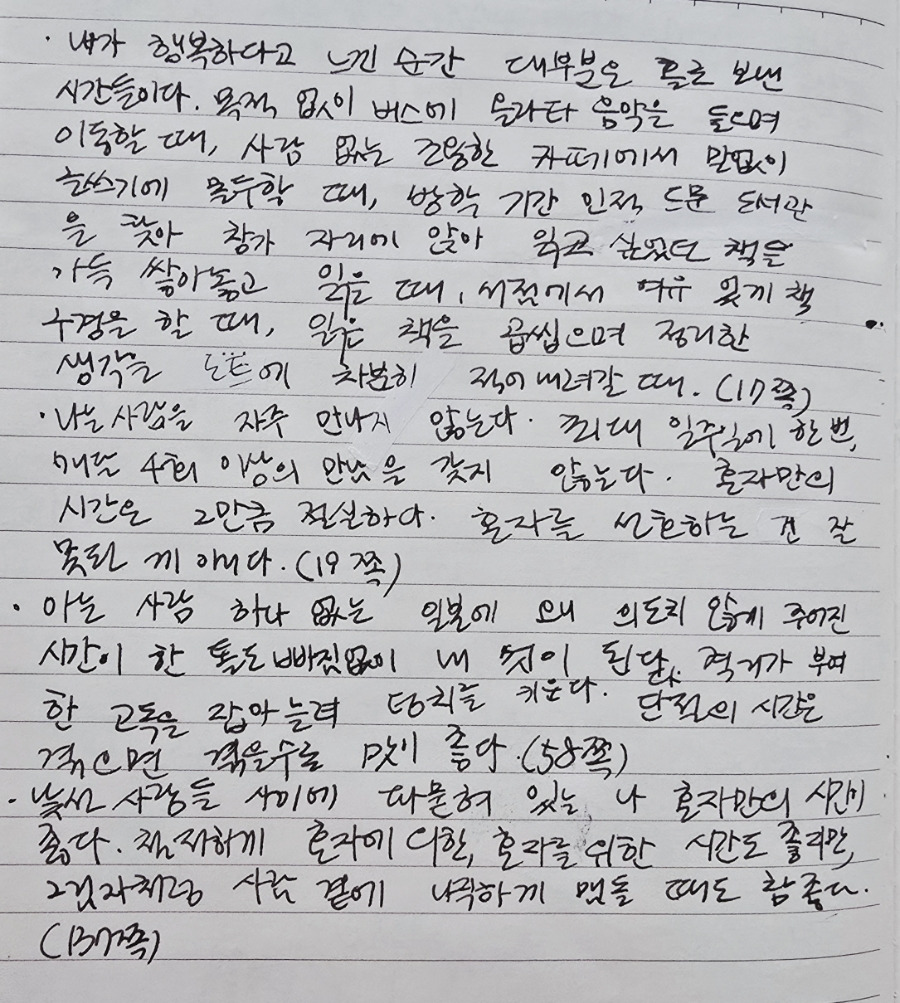 · 내가 행복하다고 느낀 순간 대부분은 홀로 보낸
시간들이다. 목적 없이 버스에 올라타 음악을 들으며
이동할 때, 사람 없는 조용한 카페에서 말없이
글쓰기에 몰두할 때, 방학 기간 인적 드문 도서관
을 찾아 창가 자리에 앉아 읽고 싶었던 책을
가득 쌓아놓고 읽을 때, 서점에서 여유 있게 책
구경을 할 때, 읽은 책을 곱씹으며 정리한
생각을 노트에 차분히 적어내려갈 때. (17쪽)
· 나는 사람을 자주 만나지 않는다. 최대 일주일에 한 번,
매달 4회 이상의 만남을 갖지 않는다. 혼자만의
시간은 그만큼 절실하다. 혼자를 선호하는 건 잘
못된 게 아니다. (19쪽)
· 아는 사람 하나 없는 일본에 오니 의도치 않게 주어진
시간이 한 톨도 빠짐없이 내 것이 된다. 격거가 부여
한 고독을 잡아늘려 덩치를 키운다. 단절의 시간은
겪으면 겪을수록 맛이 좋다. (58쪽)
· 낯선 사람들 사이에 파묻혀 있는 나 혼자만의 시간이
좋다. 철저하게 혼자에 의한, 혼자를 위한 시간도 좋지만,
그림자처럼 사람 곁에 나직하게 맴돌 때도 참 좋다.
(137쪽)